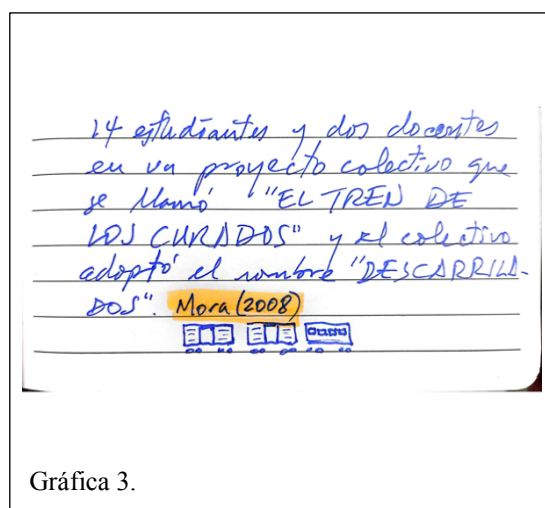 14 estudiantes y dos docentes
en un proyecto colectivo que
se llamó "EL TREN DE
LOS CURADOS" y el colectivo
adoptó el nombre "DESCARRILA-
DOS". Mora (2008)
Gráfica 3.